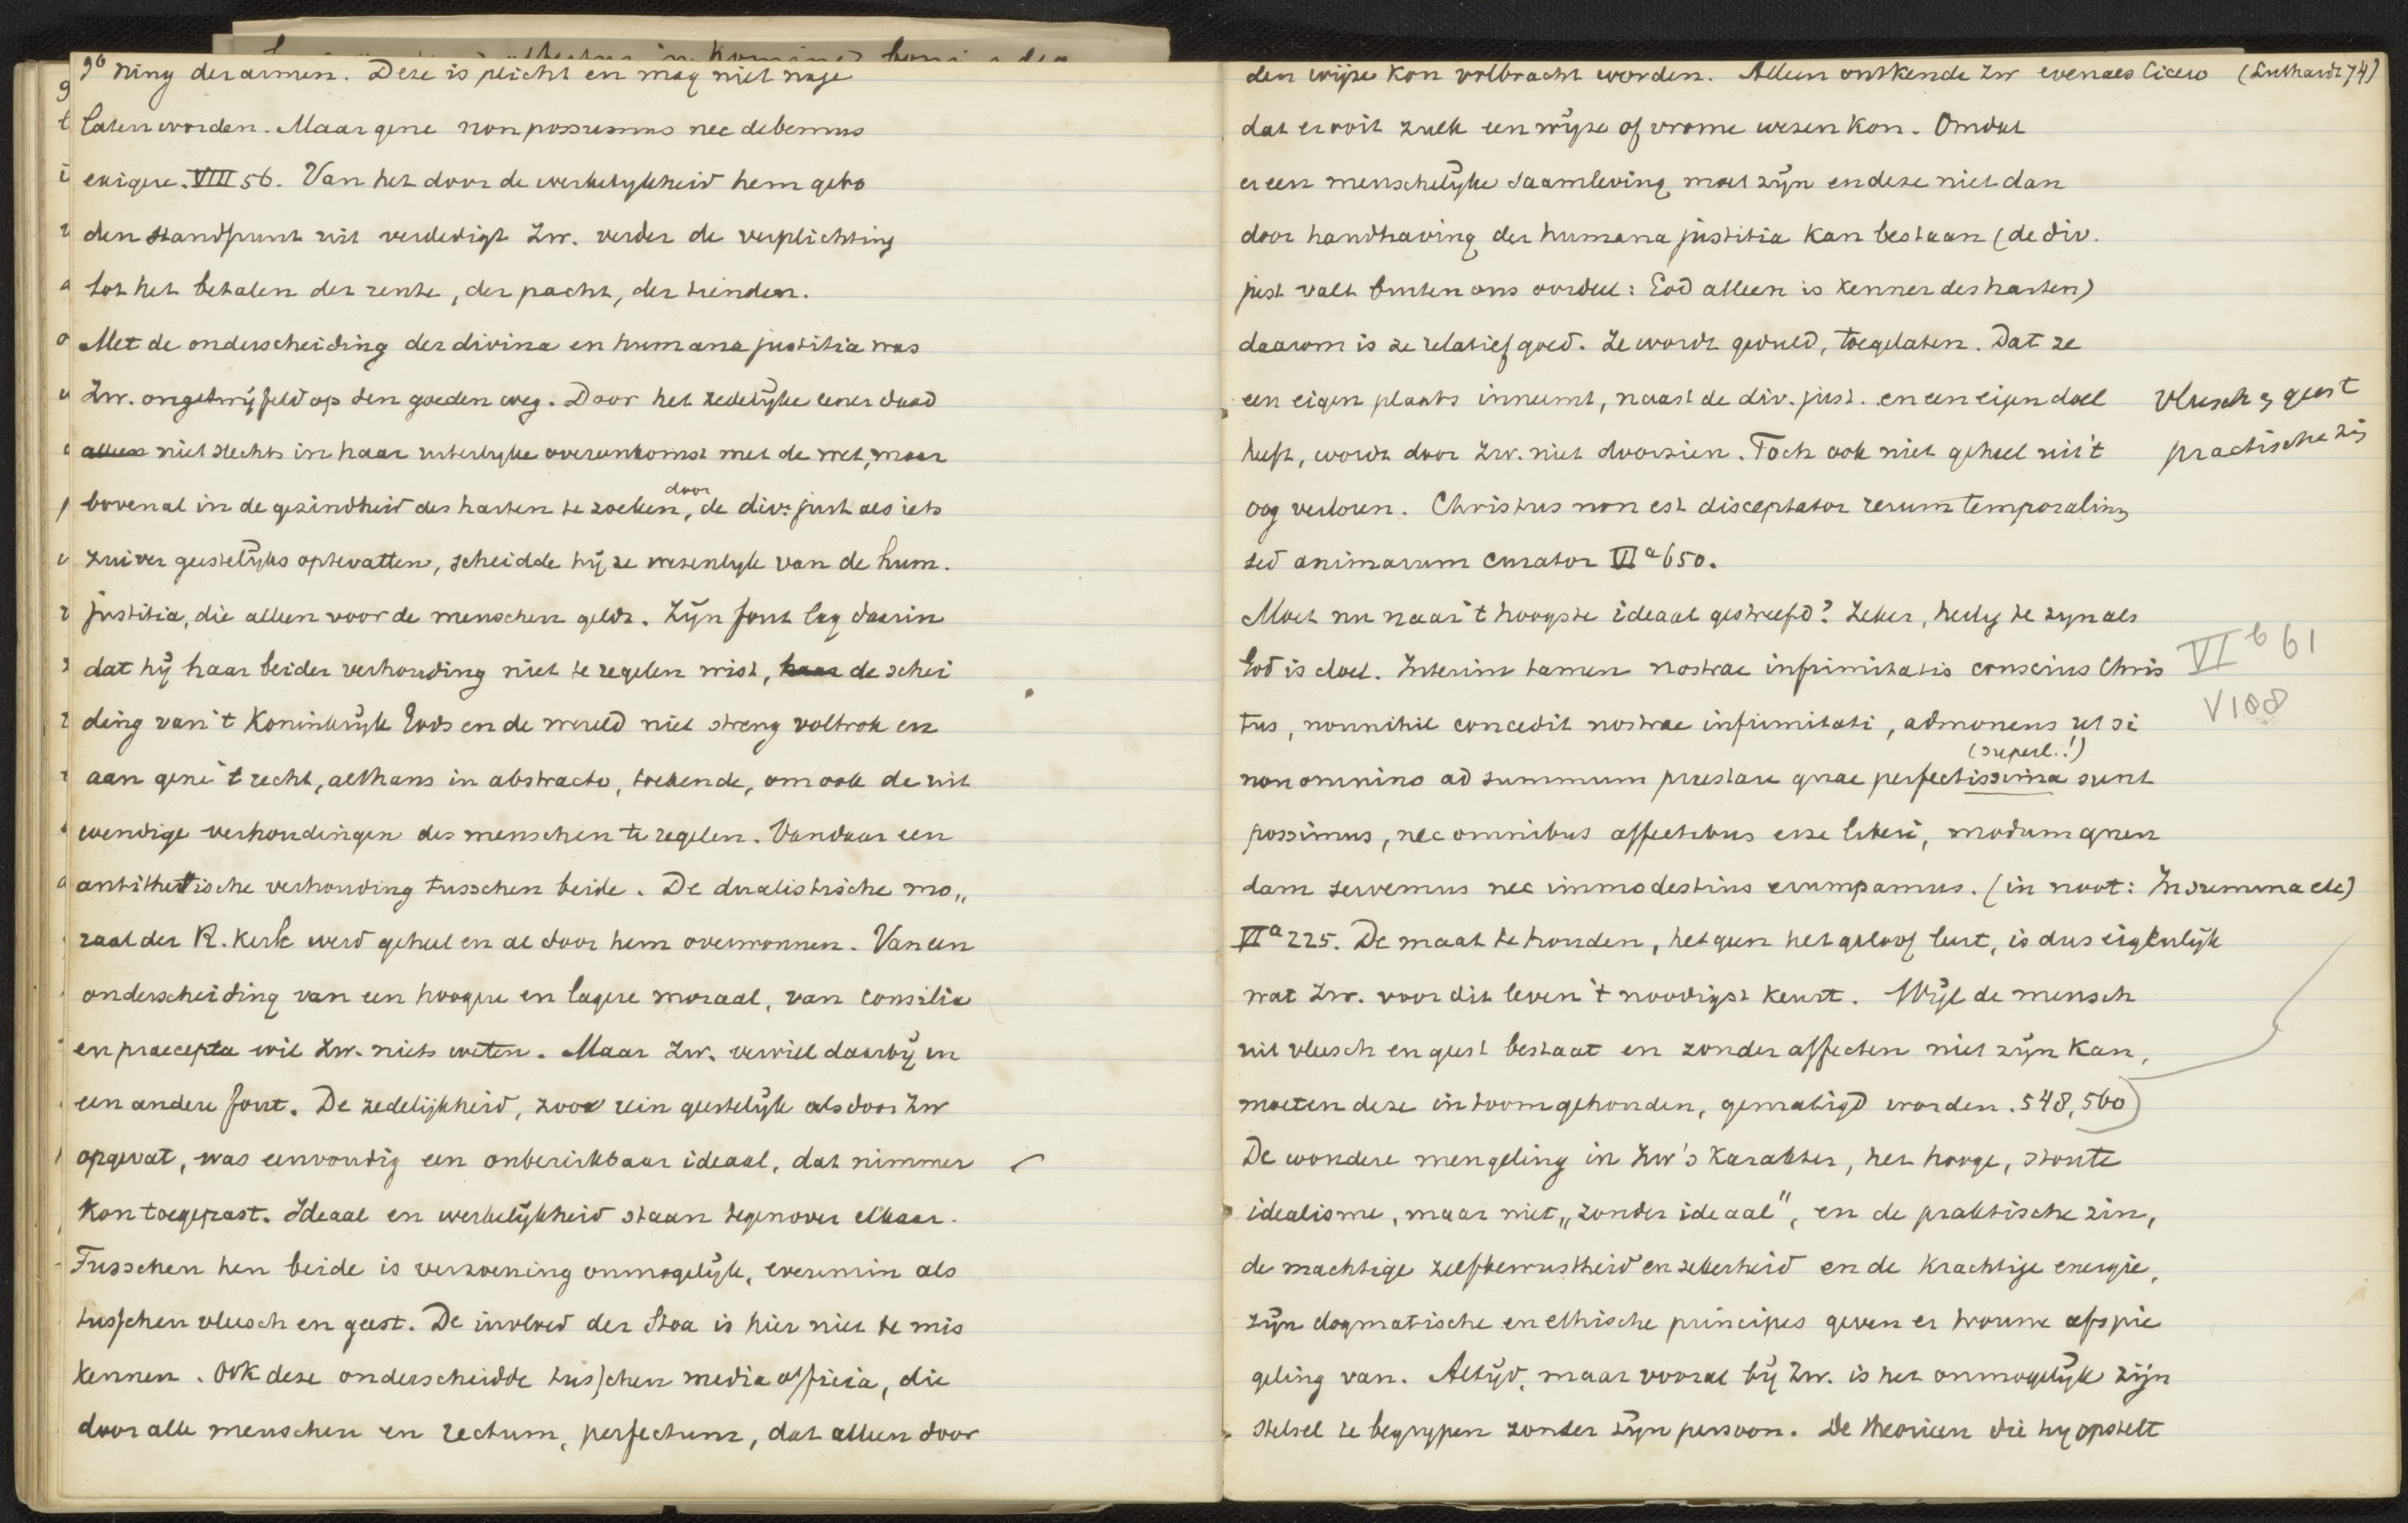 90 ning der armen. Deze is plicht en mag niet nage
laten worden. Maar gene non possumus nec debemus
exigere. VIII 56. Van het door de werkelykheid hem gebo
den standpunt uit verdedigt Zw. verder de verplichting
tot het betalen der rente, der pacht, der tienden.
Met de onderscheiding der divina en humana justitia was
Zw. ongetwijfeld op den goeden weg. Door het zedelyke eener daad
alleen niet slechts in haar uiterlyke overeenkomst met de wet, maar
bovenal in de gezindheid des harten te zoeken, door de div. just als iets
zuiver geestelyks optevatten, scheidde hij ze wezenlyk van de hum.
justitia, die alleen voor de menschen geldt. Zijn fout lag daarin
dat hij haar beider verhouding niet te regelen wist, haar de schei
ding van 't Koninkrijk Gods en de wereld niet streng voltrok en
aan gene 't recht, althans in abstracto, toekende, om ook de uit
wendige verhoudingen des menschen te regelen. Vandaar een
antithetische verhouding tusschen beide. De dualistische mo„
raal der R. Kerk werd geheel en al door hem overwonnen. Van een
onderscheiding van een hoogere en lagere moraal, van consilia
en praecepta wil Zw. niets weten. Maar Zw. verviel daarbij in
een andere fout. De zedelijkheid, zoo rein geestelijk als door Zw
opgevat, was eenvoudig een onbereikbaar ideaal, dat nimmer
kon toegepast. Ideaal en werkelijkheid staan tegenover elkaar.
Tusschen hen beide is verzoening onmogelijk, evenmin als
tusschen vleesch en geest. De invloed der Stoa is hier niet te mis
kennen. Ook deze onderscheidde tusschen media officia, die
door alle menschen en rectum, perfectum, dat alleen door
den wijze kon volbracht worden. Alleen ontkende Zw evenals Cicero (Luthardt 74)
dat er ooit zulk een wijze of vrome wezen kon. Omdat
er een menschelijke saamleving moet zijn en deze niet dan
door handhaving der humana justitia kan bestaan (de div.
just valt buiten ons oordeel: God alleen is kenner des harten)
daarom is ze relatief goed. Ze wordt geduld, toegelaten. Dat ze
een eigen plaats inneemt, naast de div. just. en een eigen doel
heeft, wordt door Zw. niet doorzien. Toch ook niet geheel uit 't
oog verloren. Christus non est disceptator rerum temporalium
sed animarum curator VIa 650.
vleesch & geest
practische zin
Moet nu naar 't hoogste ideaal gestreefd? Zeker, heilig te zyn als
God is doel. Interim tamen nostrae infirmitatis conscius Chris
tus, nonnihil concedit nostrae infirmitati, admonens ut si
(superl.!)
non omnino ad summum praestare quae perfectissima sunt
possimus, nec omnibus affectibus esse liberi, modum quen
dam servemus nec immodestius erumpamus. (in noot: In summa etc)
VIb 61
V 108
VIa 225. De maat te houden, hetgeen het geloof leert, is dus eigenlijk
wat Zw. voor dit leven 't noodigst keurt. Wijl de mensch
uit vleesch en geest bestaat en zonder affecten niet zijn kan,
moeten deze in toom gehouden, gematigd worden. 548, 560)
De wondere mengeling in Zw's karakter, het hooge, stoute
idealisme, maar niet „zonder ideaal", en de praktische zin,
de machtige zelfbewustheid en zekerheid en de krachtige energie,
zijn dogmatische en ethische principes geven er trouwe afspie
geling van. Altijd, maar vooral bij Zw. is het onmogelijk zijn
stelsel te begrypen zonder zijn persoon. De theorieen die hy opstelt